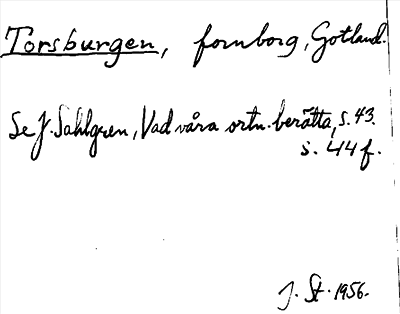 Torsburgen, fornborg, Gotland.
Se J. Sahlgren, Vad våra ortn. berätta, s. 43.
s. 44 f.
J. St. 1956.